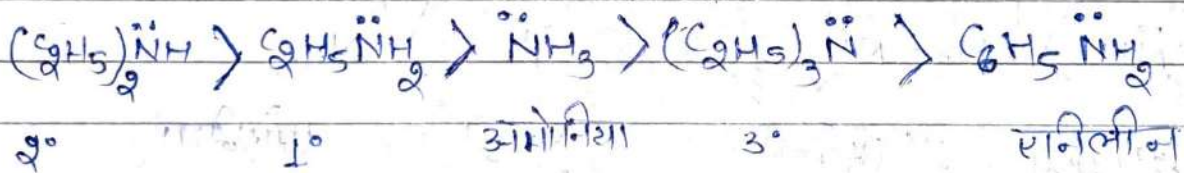 (C₂H₅)₂N̈H > C₂H₅N̈H₂ > N̈H₃ > (C₂H₅)₃N̈ > C₆H₅N̈H₂
2° 1° अमोनिया 3° एनिलीन